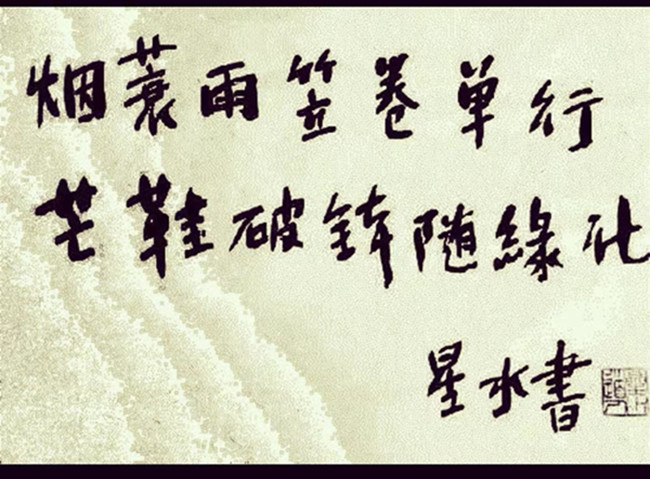 烟蓑雨笠卷单行
芒鞋破鉢随緣化
星水書